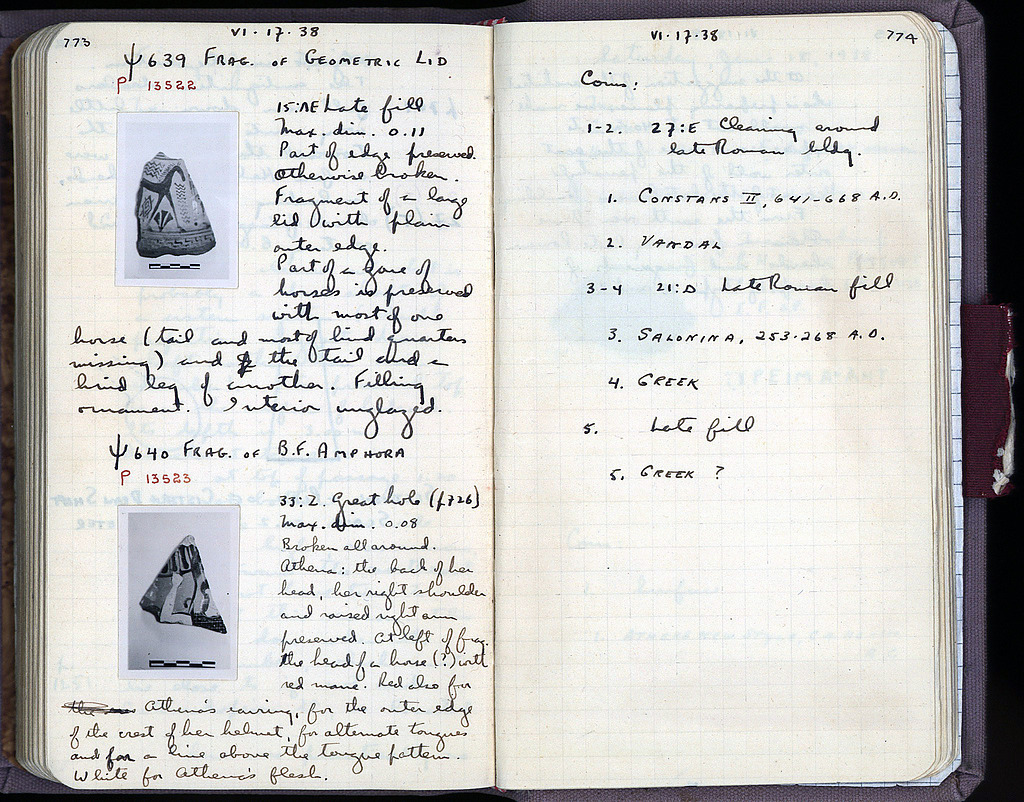 773
VI·17·38
Ψ639 FRAG. OF GEOMETRIC LID
P 13522
15:ΛE Late fill
Max. dim. 0.11
Part of edge preserved.
Otherwise broken.
Fragment of a large
lid with plain
outer edge.
Part of a zone of
horses is preserved
with most of one
horse (tail and most of hind quarters
missing) and the tail and a
hind leg of another. Filling
ornament. Interior unglazed.
Ψ640 FRAG. OF B.F. AMPHORA
P 13523
33:Σ. Great hole (p726)
Max. dim. 0.08
Broken all around.
Athena: the back of her
head, her right shoulder
and raised right arm
preserved. At left of frag.
the head of a horse (?) with
red mane. Red also for
Athena's earring, for the outer edge
of the crest of her helmet, for alternate tongues
and for a line above the tongue pattern.
White for Athena's flesh.
VI·17·38
774
Coins:
1-2. 27:E Cleaning around
late Roman bldg.
1. CONSTANS II, 641-668 A.D.
2. VANDAL
3-4 21:D Late Roman fill
3. SALONINA, 253-268 A.D.
4. GREEK
5. Late fill
5. GREEK ?